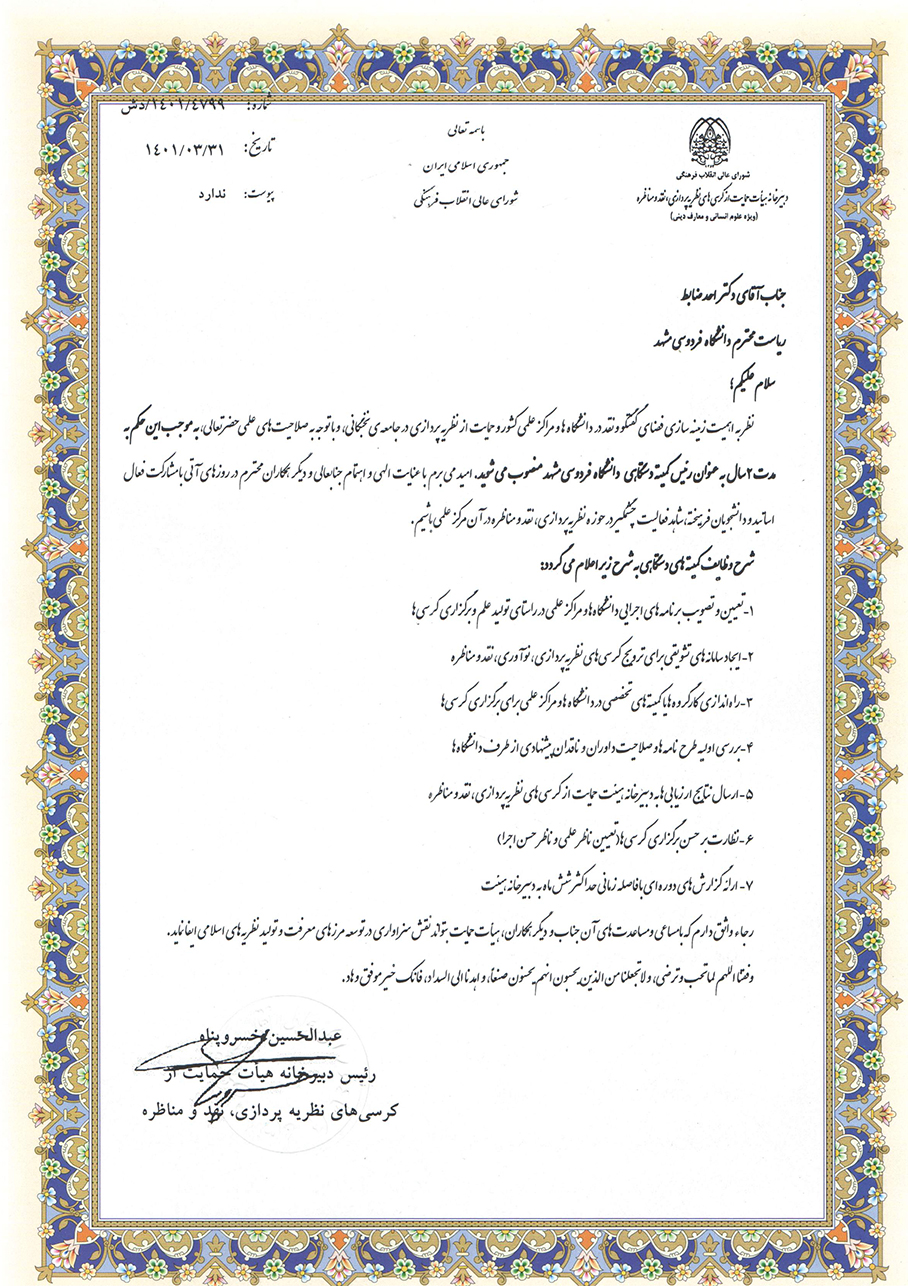 باسمه تعالی
جمهوری اسلامی ایران
شورای عالی انقلاب فرهنگی
شورای عالی انقلاب فرهنگی
دبیرخانه هیأت حمایت از کرسی های نظریه پردازی، نقد و مناظره
(ویژه علوم انسانی و معارف دینی)
شماره: ۱۴۰۱/۴۷۹۹/دش
تاریخ: ۱۴۰۱/۰۳/۳۱
پیوست: ندارد
جناب آقای دکتر احد ضابط
ریاست محترم دانشگاه فردوسی مشهد
سلام علیکم؛
نظر به اهمیت زمینه سازی فضای گفتگو و نقد در دانشگاه ها و مراکز علمی کشور و حمایت از نظریه پردازی در جامعه ی نخبگانی، و با توجه به صلاحیت های علمی حضرتعالی، به موجب این حکم به
مدت ۲ سال به عنوان رئیس کمیته دستگاهی دانشگاه فردوسی مشهد منصوب می شوید. امید می برم با عنایت الهی و اهتمام جنابعالی و دیگر همکاران محترم در روزهای آتی با مشارکت فعال
اساتید و دانشجویان فرهیخته، شاهد فعالیت چشمگیر در حوزه نظریه پردازی، نقد و مناظره در آن مرکز علمی باشیم.
شرح وظایف کمیته های دستگاهی به شرح زیر اعلام می گردد:
۱- تعیین و تصویب برنامه های اجرایی دانشگاه ها و مراکز علمی در راستای تولید علم و برگزاری کرسی ها؛
۲- ایجاد سامانه های تشویقی برای ترویج کرسی های نظریه پردازی، نوآوری، نقد و مناظره
۳- راه اندازی کارگروه ها یا کمیته های تخصصی در دانشگاه ها و مراکز علمی برای برگزاری کرسی ها
۴- بررسی اولیه طرح نامه ها و صلاحیت داوران و ناقدان پیشنهادی از طرف دانشگاه ها
۵- ارسال نتایج ارزیابی ها به دبیرخانه هیئت حمایت از کرسی های نظریه پردازی، نقد و مناظره
۶- نظارت بر حسن برگزاری کرسی ها (تعیین ناظر علمی و ناظر حسن اجرا)
۷- ارائه گزارش های دوره ای با فاصله زمانی حداکثر شش ماه به دبیرخانه هیئت
رجاء واثق دارم که با مساعی و مساعدت های آن جناب و دیگر همکاران، هیأت حمایت بتواند نقش سزاواری در توسعه مرزهای معرفت و تولید نظریه های اسلامی ایفا نماید.
وفقنا اللهم لما تحب و ترضی، و لا تجعلنا من الذین یحسبون انهم یحسنون صنعاً، و اهدنا الی السداد، فانک خیر موفق و هاد.
عبدالحسین خسروپناه
رئیس دبیرخانه هیأت حمایت از
کرسی‌های نظریه پردازی، نقد و مناظره